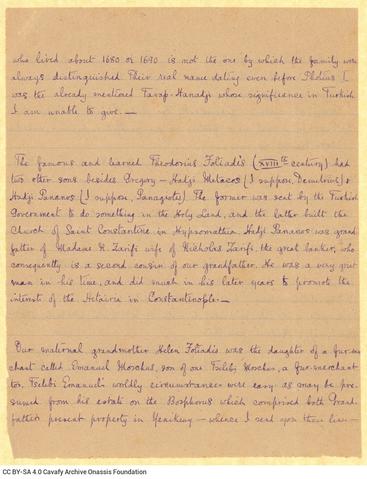 who lived about 1680 or 1690 is not the one by which the family were
always distinguished. Their real name dating even before Photius I
was the already mentioned Tavap-Hanadji whose significance in Turkish
I am unable to give. —
The famous and learned Theodorius Fotiadis (XVIIIth century) had
two other sons besides Gregory — Hadji Metacos (I suppose, Demetrius) &
Hadji Pananos (I suppose, Panagiotes). The former was sent by the Turkish
Government to do something in the Holy Land, and the latter built the
Church of Saint Constantine in Hypsomathia. Hadji Pananos was grand
father of Madame H. Zarifi wife of Nicholas Zarifi, the great banker, who
consequently is a second cousin of our grandfather. He was a very great
man in his time, and did much in his later years to promote the
interests of the Hetairia in Constantinople. —
Our maternal grandmother Helen Fotiadis was the daughter of a fur-mer
chant called Emanuel Moschus, son of one Tselebi Moschus, a fur-merchant
too. Tselebi Emanuel's worldly circumstances were easy as may be pre-
sumed from his estate on the Bosphorus which comprised both Grand-
father's present property in Yenikeuy — whence I send you these lines —
CC BY-SA 4.0 Cavafy Archive Onassis Foundation